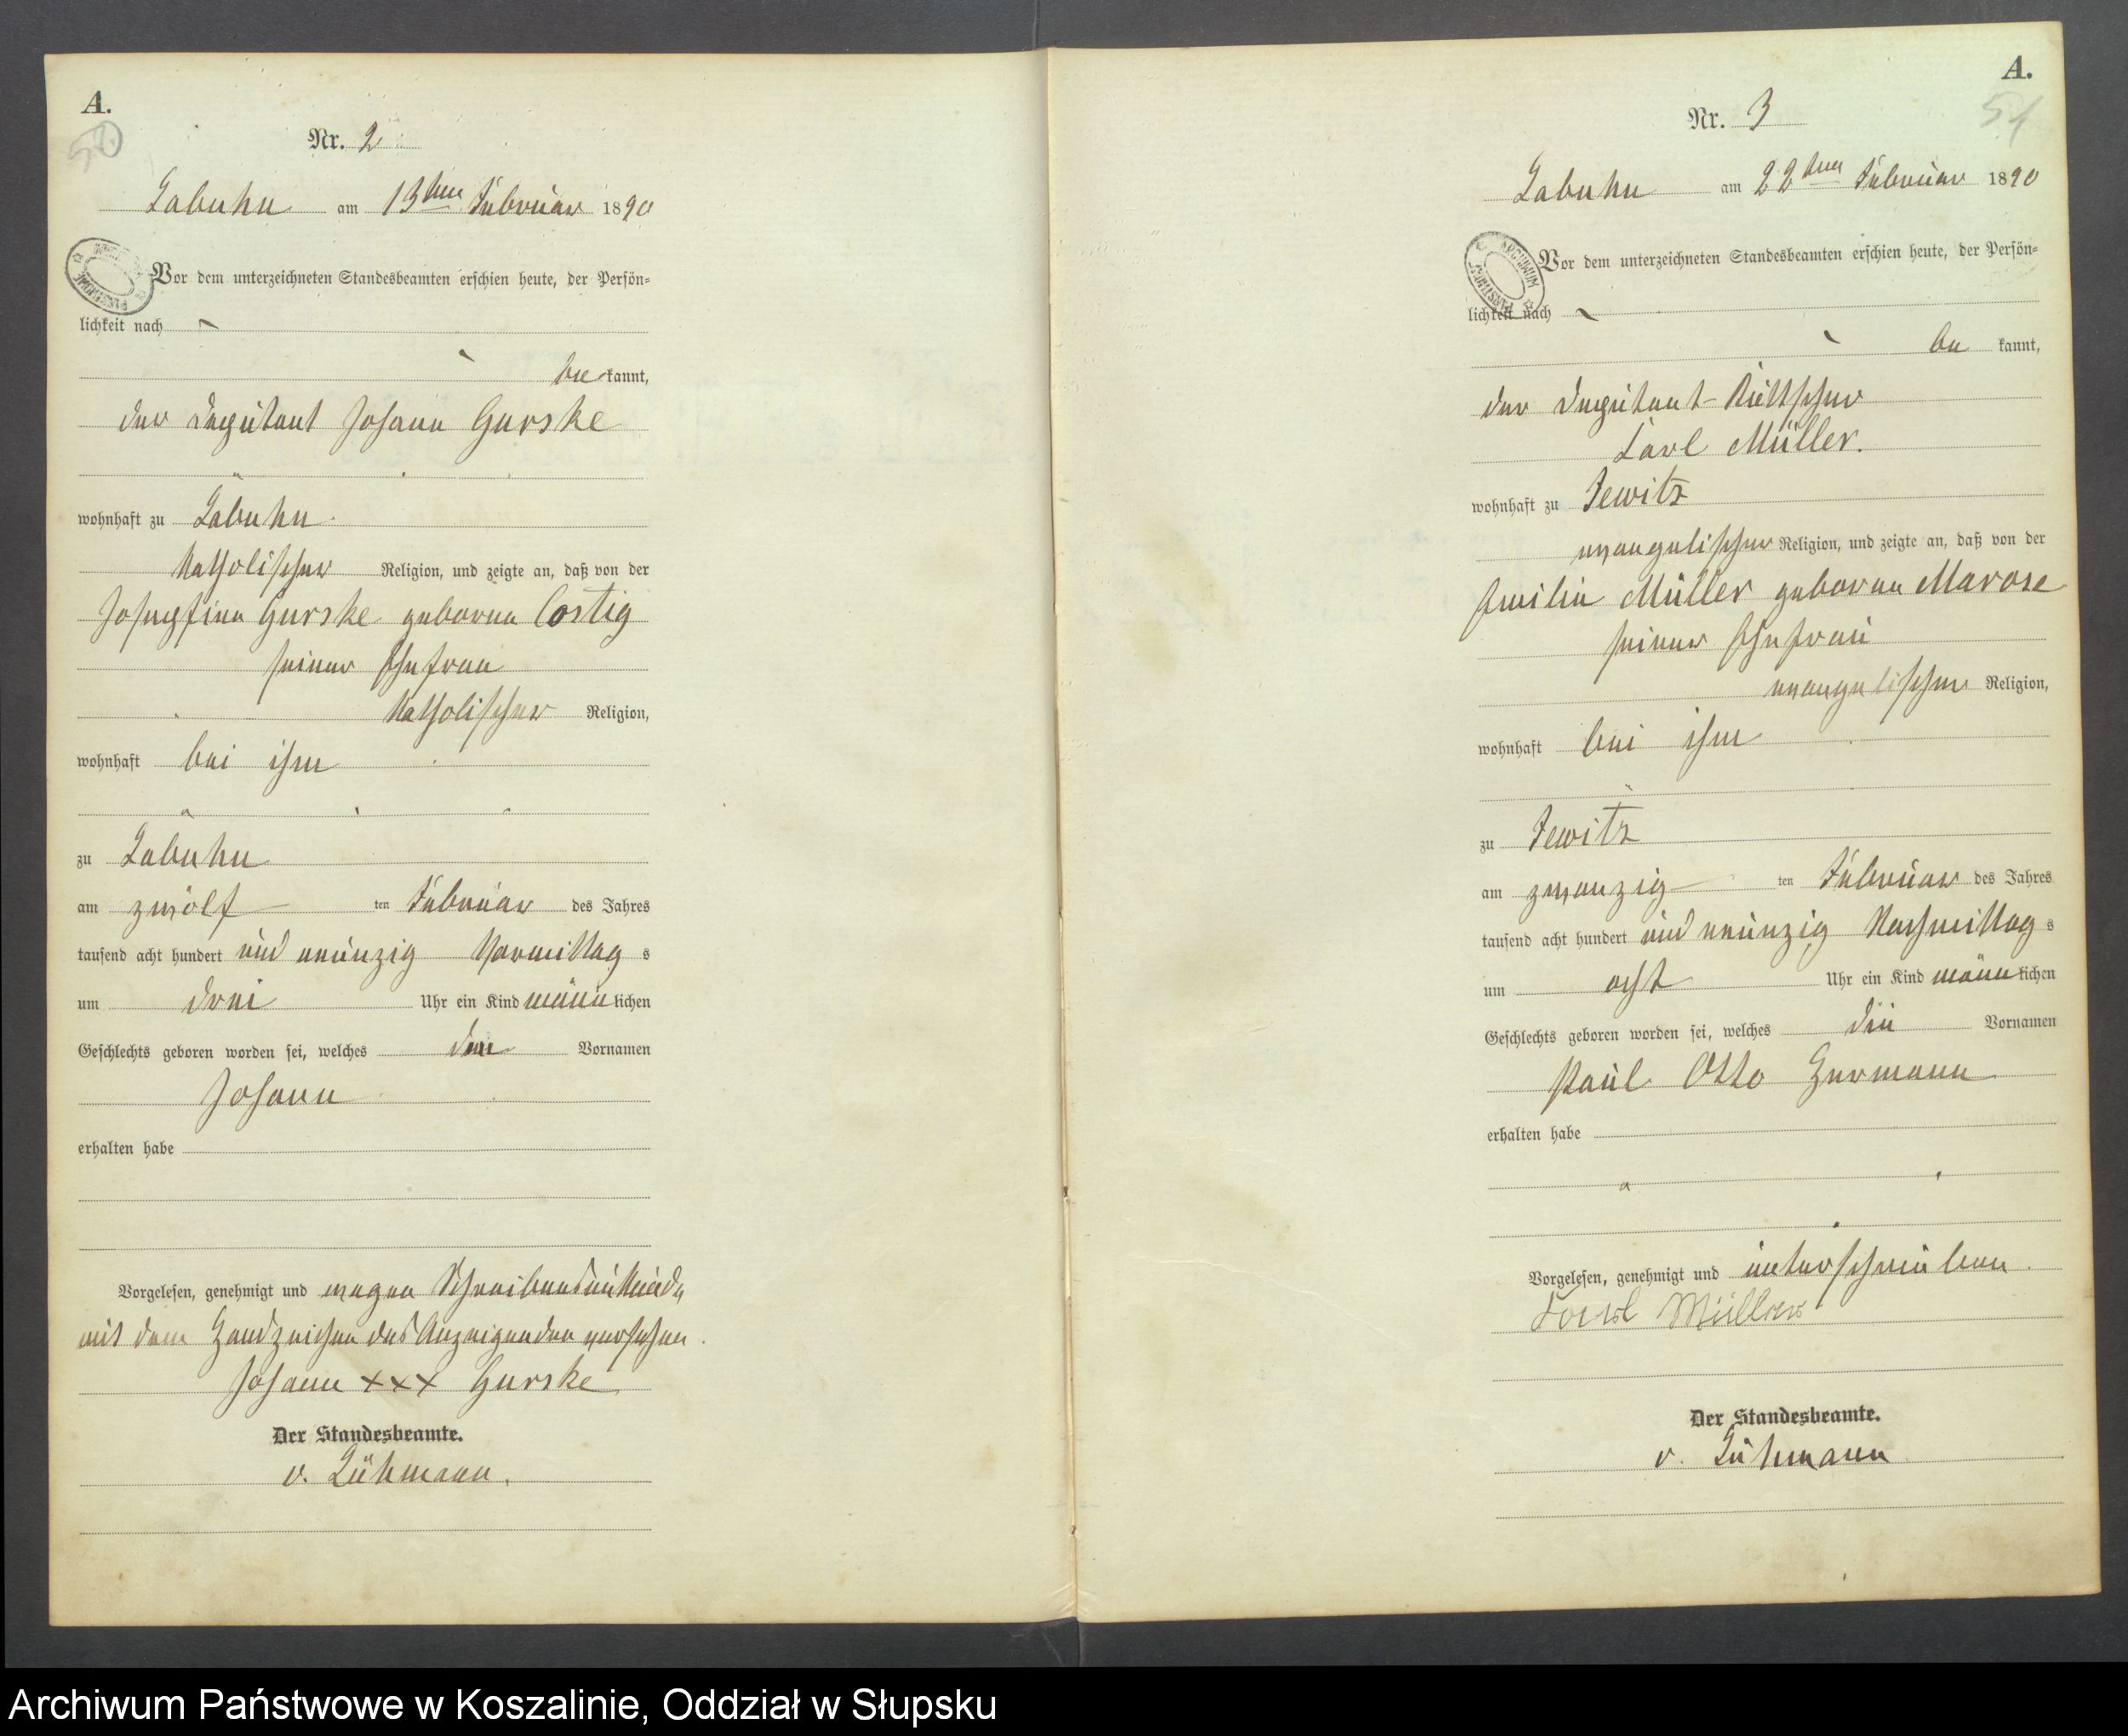 A.
50
Nr. 2
Labuhn am 13ten Februar 1890
Vor dem unterzeichneten Standesbeamten erschien heute, der Persön=
lichkeit nach
be kannt,
der Deputant Johann Gurske
wohnhaft zu Labuhn
Katholischer Religion, und zeigte an, daß von der
Josephine Gurske geborene Costig
seiner Ehefrau
Katholischer Religion,
wohnhaft bei ihm
zu Labuhn
am zwölf ten Februar des Jahres
tausend acht hundert und neunzig Vormittag s
um drei Uhr ein Kind männ lichen
Geschlechts geboren worden sei, welches den Vornamen
Johann
erhalten habe
Vorgelesen, genehmigt und wegen Schreibensunkunde
mit dem Handzeichen des Anzeigenden versehen.
Johann +++ Gurske
Der Standesbeamte.
v. Lühmann.
A.
51
Nr. 3
Labuhn am 22ten Februar 1890
Vor dem unterzeichneten Standesbeamten erschien heute, der Persön=
lichkeit nach
be kannt,
der Deputant-Kutscher
Carl Müller.
wohnhaft zu Jewitz
evangelischer Religion, und zeigte an, daß von der
Emilie Müller geborene Marose
seiner Ehefrau
evangelischer Religion,
wohnhaft bei ihm
zu Jewitz
am zwanzig ten Februar des Jahres
tausend acht hundert und neunzig Nachmittag s
um acht Uhr ein Kind männ lichen
Geschlechts geboren worden sei, welches die Vornamen
Paul Otto Hermann
erhalten habe
Vorgelesen, genehmigt und unterschrieben.
Carl Müller
Der Standesbeamte.
v. Lühmann
Archiwum Państwowe w Koszalinie, Oddział w Słupsku